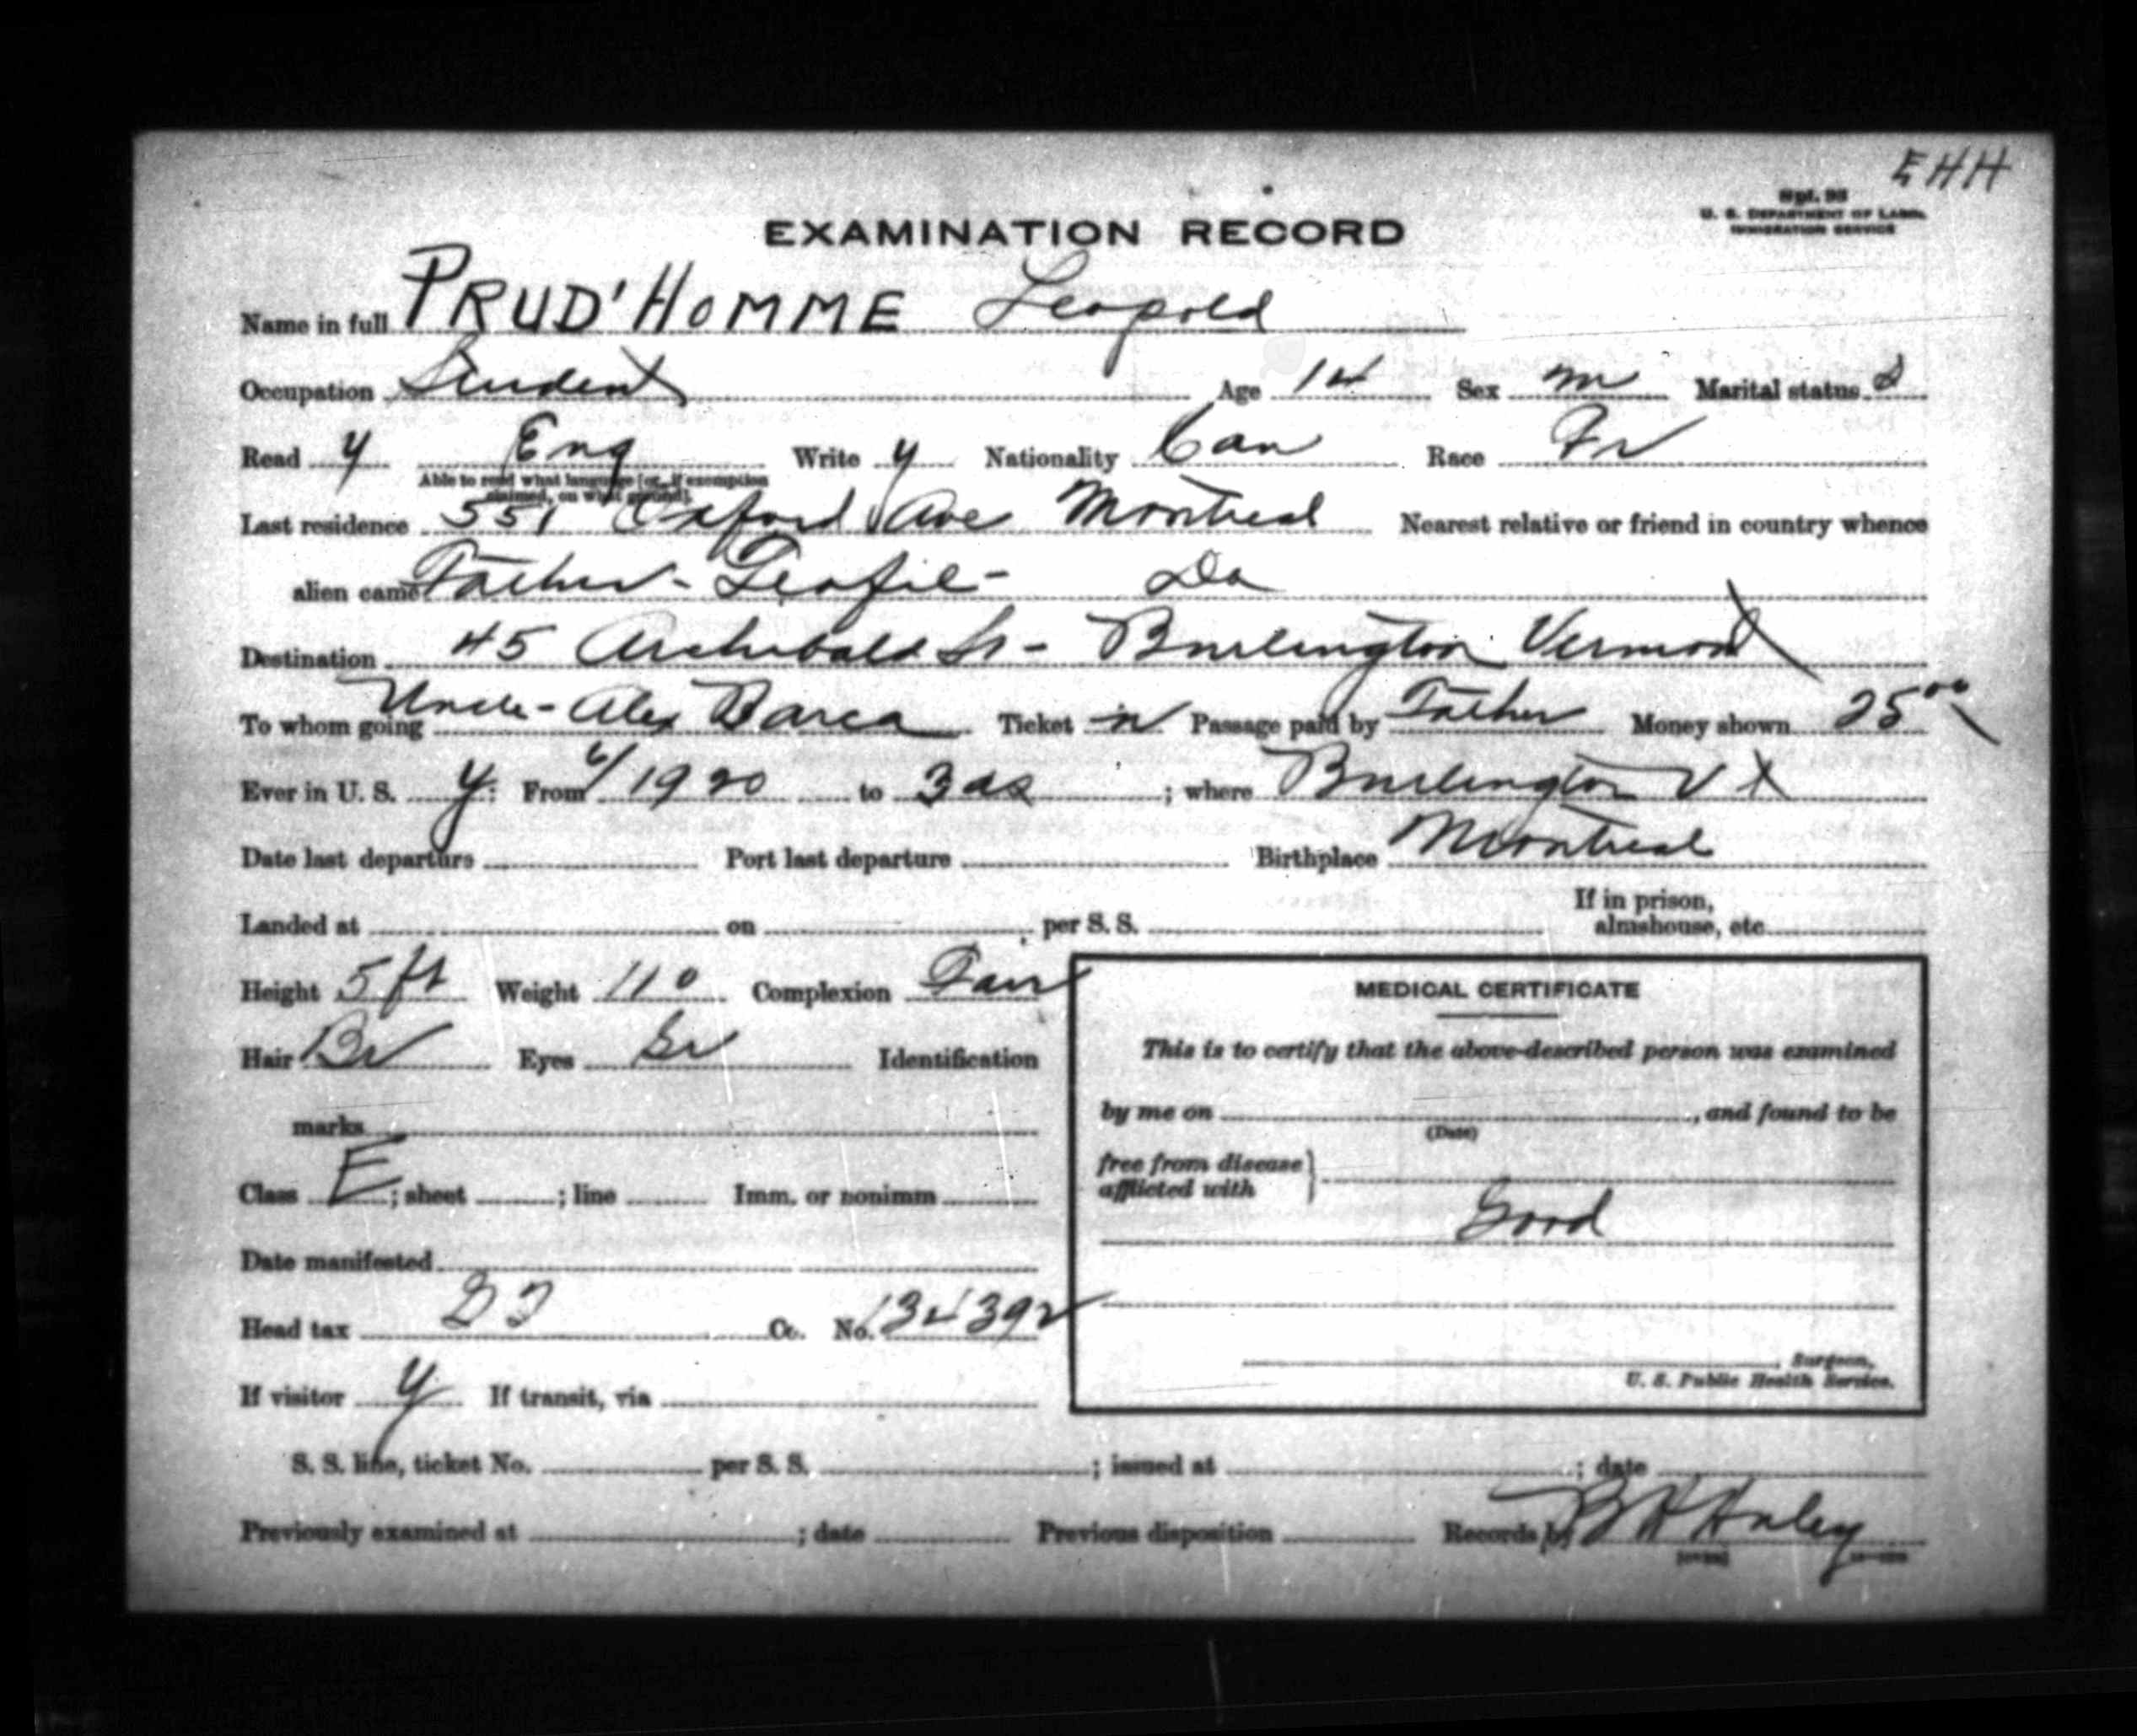 EHH
U. S. DEPARTMENT OF LABOR
IMMIGRATION SERVICE
EXAMINATION RECORD
Name in full PRUD'HOMME Leopold
Occupation Student Age 14 Sex m Marital status S
Read y Eng Write y Nationality Can Race Fr
Able to read what language [or, if exemption
claimed, on what ground].
Last residence 551 Oxford Ave Montreal Nearest relative or friend in country whence
alien came Father - Teofil - Do
Destination 45 Archibald St - Burlington Vermont
To whom going Uncle - Alex Barca Ticket n Passage paid by Father Money shown 25 00
Ever in U. S. y From 6/1920 to 3 ds ; where Burlington Vt
Date last departure Port last departure Birthplace Montreal
Landed at on , per S. S. If in prison,
almshouse, etc.
Height 5 ft Weight 110 Complexion Fair
Hair Br Eyes Gr Identification
marks
Class E ; sheet ; line Imm. or nonimm
Date manifested
Head tax Cc. No. 134392
If visitor y If transit, via
MEDICAL CERTIFICATE
This is to certify that the above-described person was examined
by me on , and found to be
(Date)
free from disease
afflicted with
Good
Surgeon,
U. S. Public Health Service.
S. S. line, ticket No. per S. S. ; issued at ; date
Previously examined at ; date Previous disposition Records by B H Haley